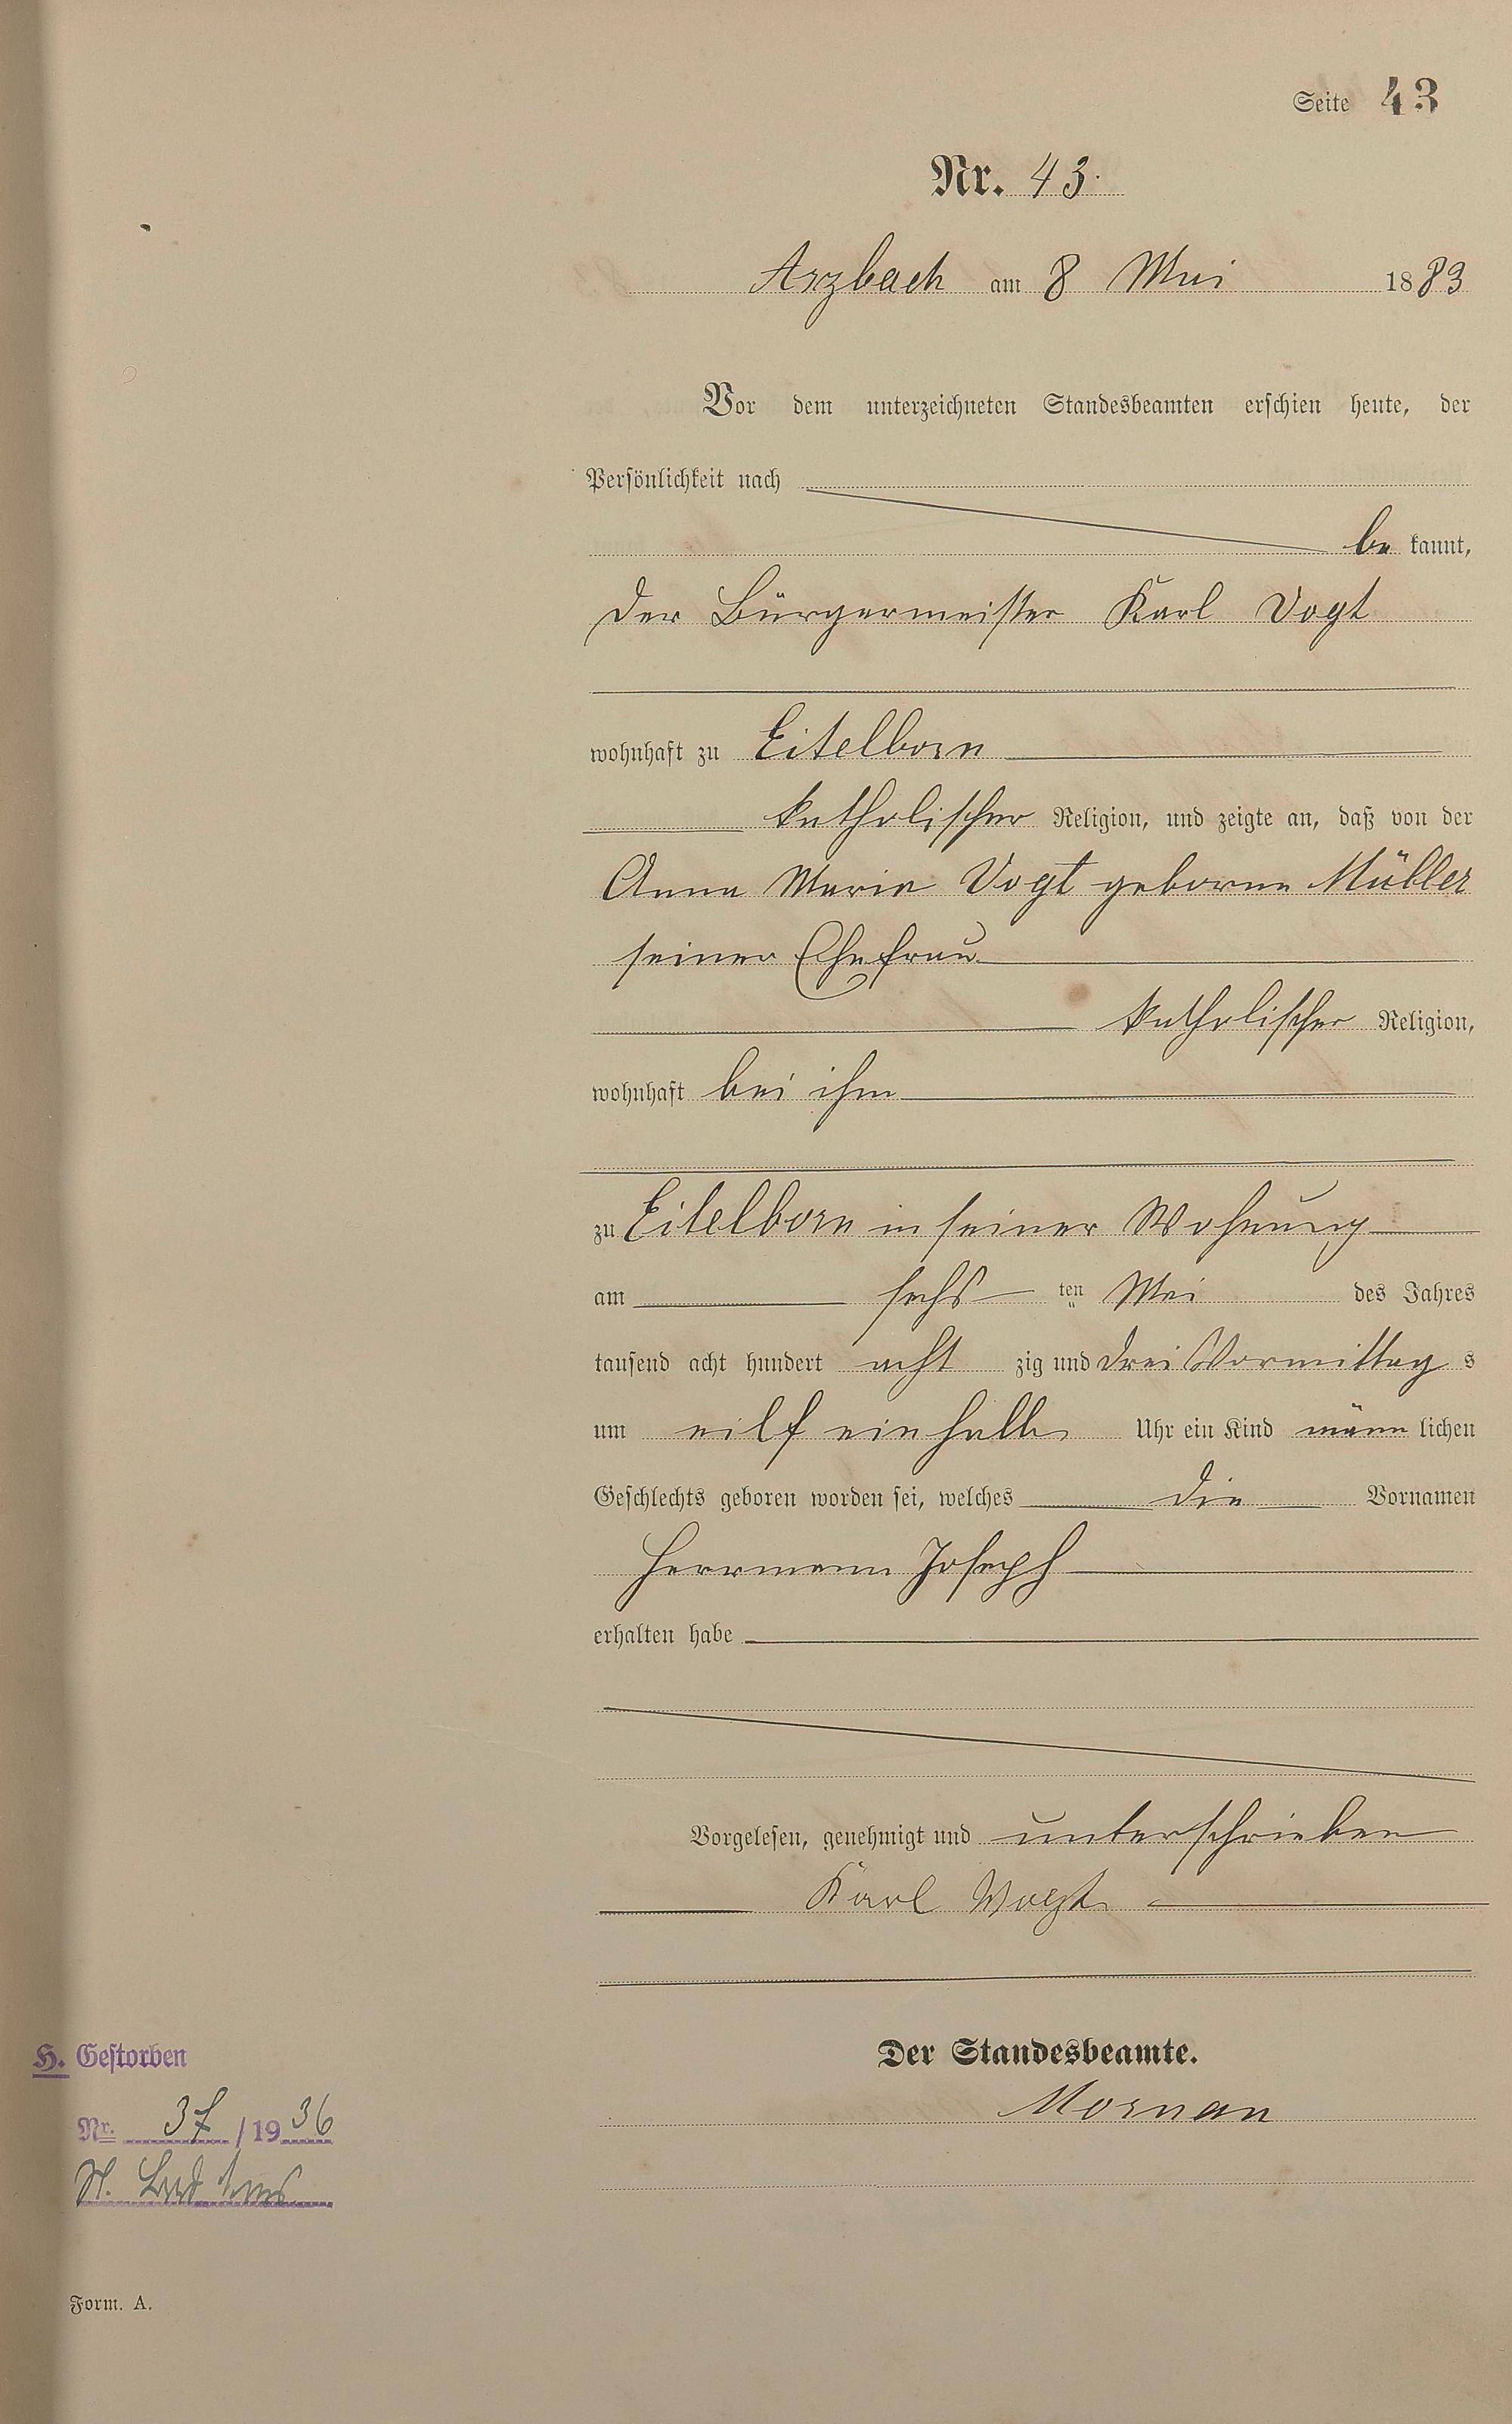 Seite 43
Nr. 43.
Arzbach am 8 Mai 1883
Vor dem unterzeichneten Standesbeamten erschien heute, der
Persönlichkeit nach
be kannt,
der Bürgermeister Karl Vogt
wohnhaft zu Eitelborn
katholischer Religion, und zeigte an, daß von der
Anna Maria Vogt geborne Müller
seiner Ehefrau
katholischer Religion,
wohnhaft bei ihm
zu Eitelborn in seiner Wohnung
am sechs ten Mai des Jahres
tausend acht hundert acht zig und drei Vormittag s
um eilf einhalb Uhr ein Kind männ lichen
Geschlechts geboren worden sei, welches die Vornamen
Herrmann Joseph
erhalten habe
Vorgelesen, genehmigt und unterschrieben
Karl Vogt
Der Standesbeamte.
Mornan
H. Gestorben
Nr. 37 / 19 36
St.
Form. A.